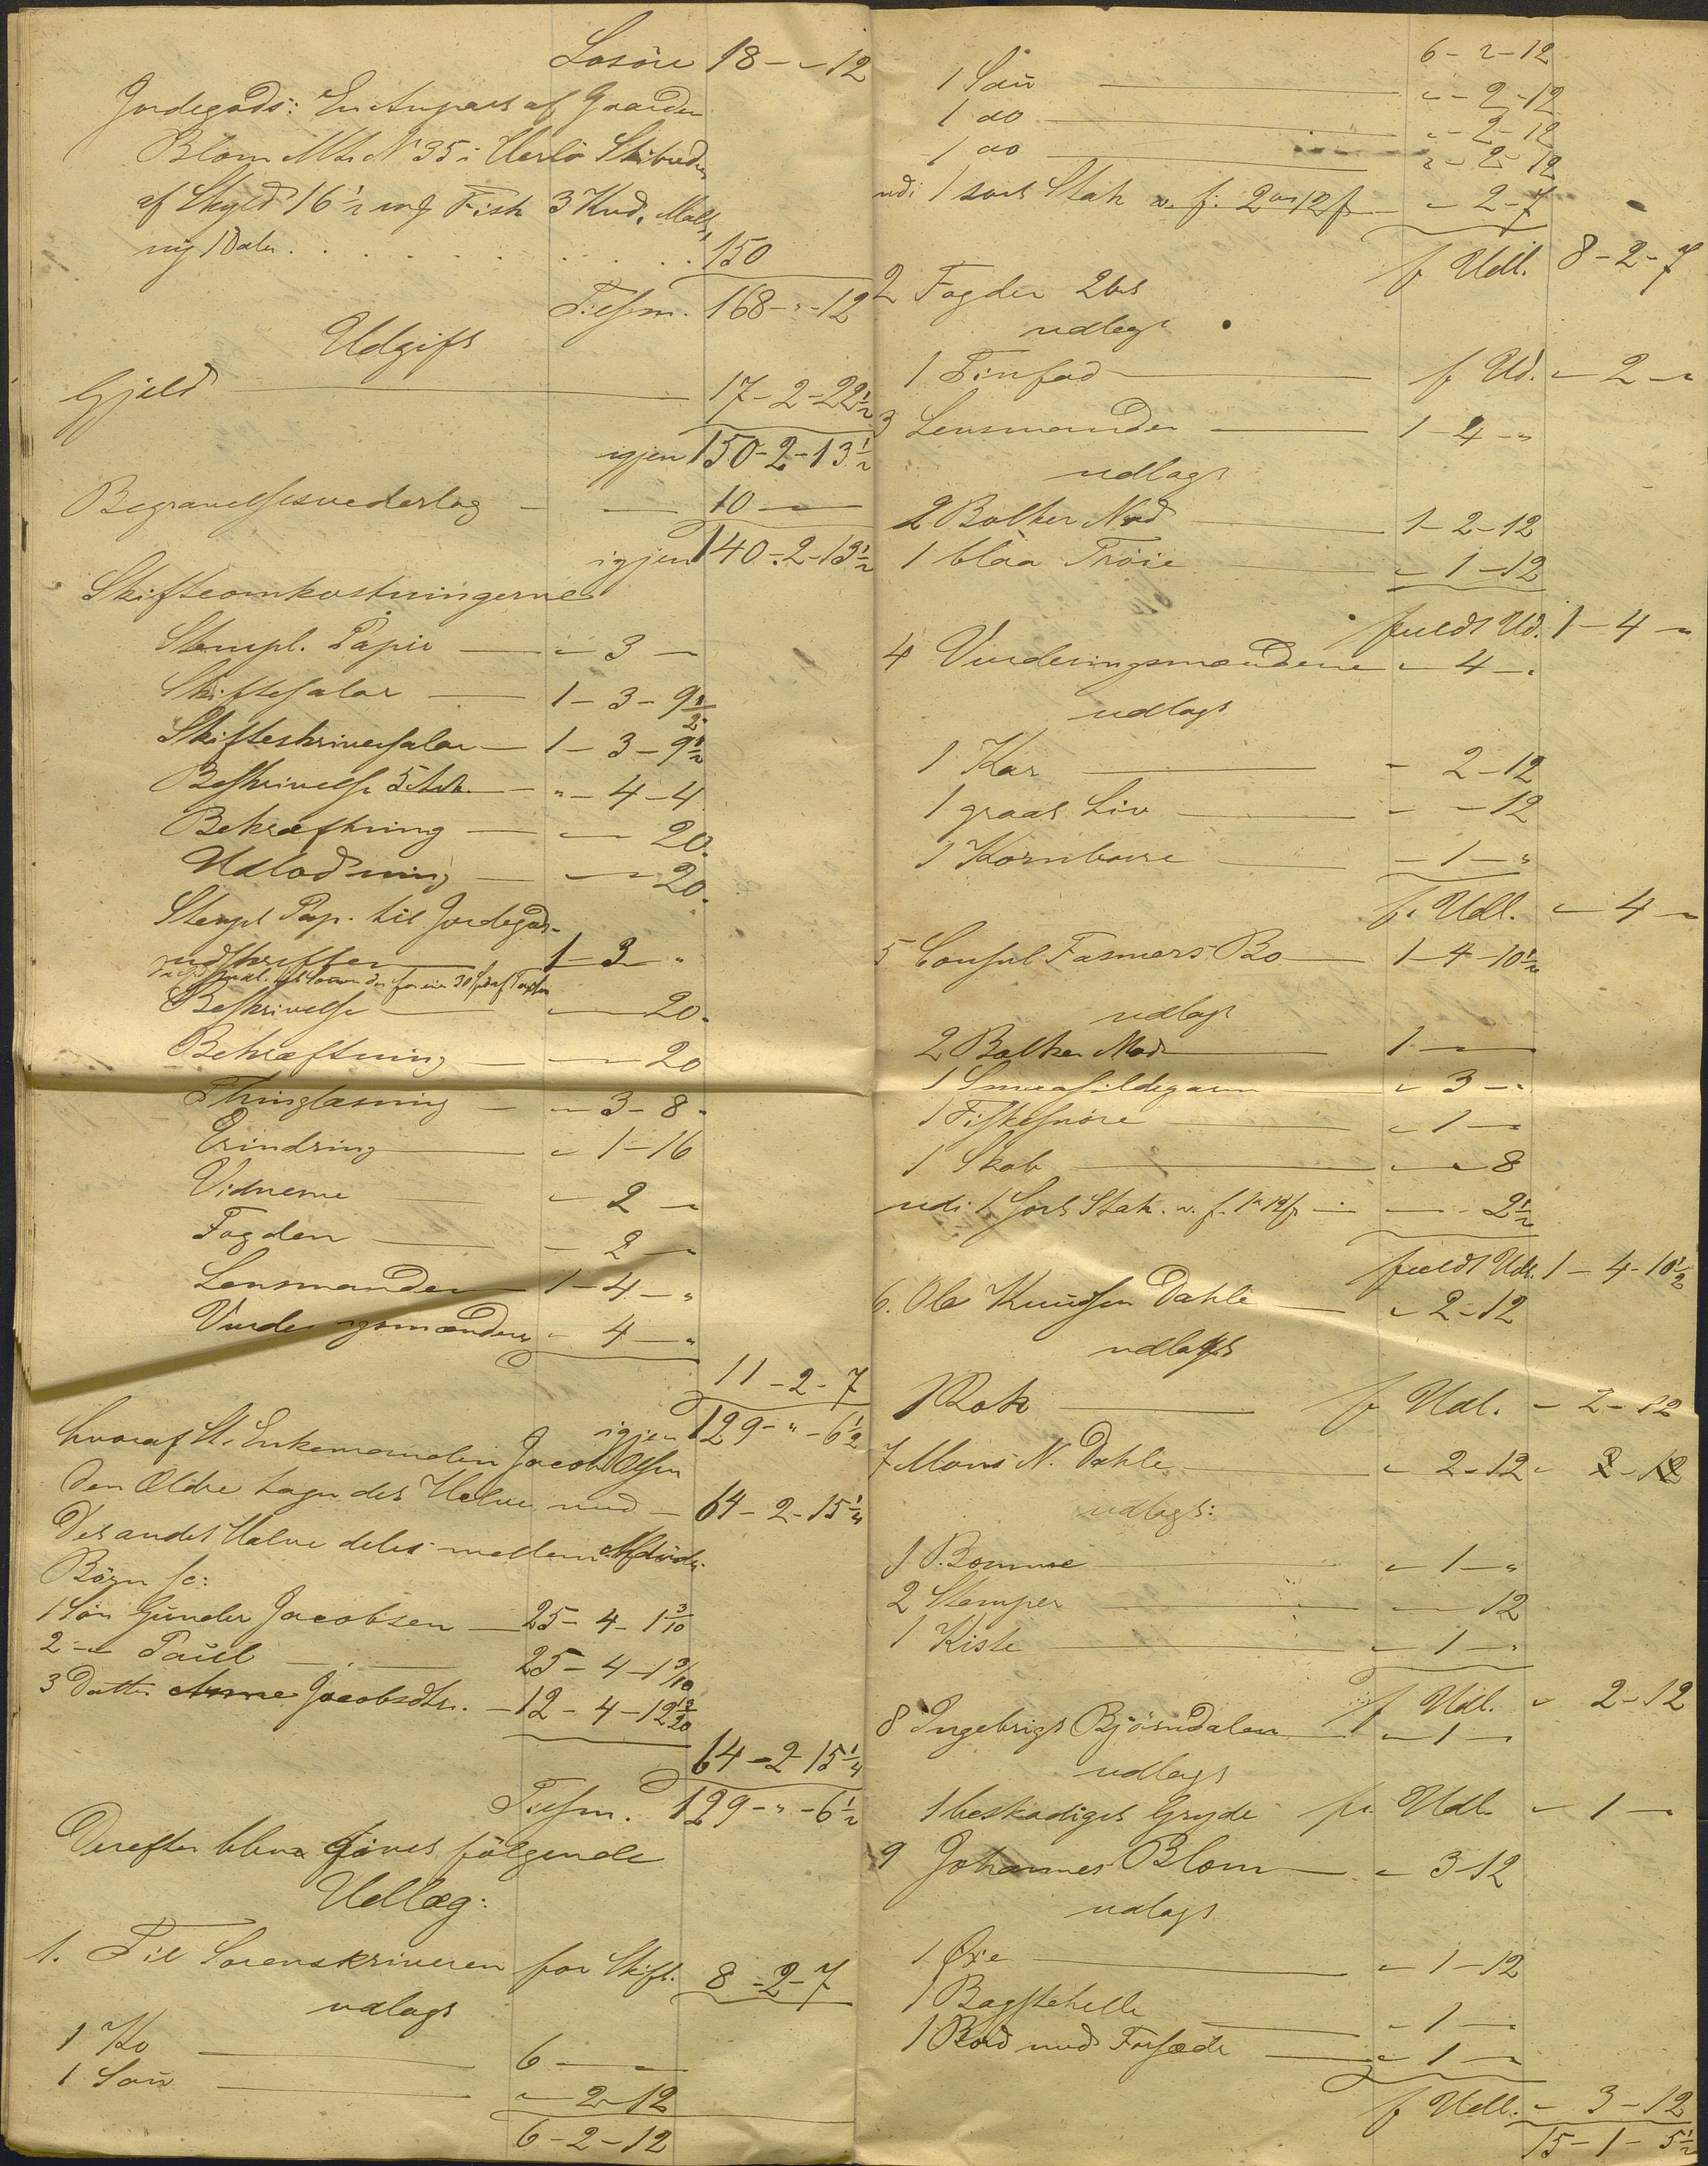 Losöre 18 - " - 12
Jordegods: En Anpart af Gaarden
Blom Mt. N° 35 i Herlö Skibrede
af Skyld 16 1/2 mg Fisk 3 Knd. Malt,
ny 1 Daler . . . . . . . . . 150
Tilsm. 168 - " - 12
Udgift
Gjeld 17 - 2 - 22 1/2
igjen 150 - 2 - 13 1/2
Begravelsesvederlag - 10 -
igjen 140 - 2 - 13 1/2
Skifteomkostningerne
Stempl. Papir " 3 -
Skiftesalar 1 - 3 - 9 1/2
Skifteskriversalar 1 - 3 - 9 1/2
Beskrivelse 5 Ark. " - 4 - 4
Bekræftning - 20.
Udlodning - 20.
Stempl. Pap. til Jordegods-
udskriften 1 - 3 "
Beskrivelse - 20.
Bekræftning - 20
Thinglæsning - 3 - 8.
Erindring " 1 - 16
Vidnerne " 2 -
Fogden - 2 -
Lensmanden 1 - 4 - "
Vurderingsmændene " 4 - "
11 - 2 - 7
igjen 129 - " - 6 1/2
hvoraf St. Enkemanden Jacob Olsen
den Ældre tager det Halve med - 64 - 2 - 15 1/4
Det andet Halve deles mellem Afdödes
Börn sc:
1 Sön Gunder Jacobsen - 25 - 4 - 1 3/10
2 - " Paul - " - 25 - 4 - 1 3/10
3 Datter Anne Jacobsdtr. - 12 - 4 - 12 13/20
64 - 2 - 15 1/4
Tilsm. 129 - " - 6 1/2
Derefter blev gjöret fölgende
Udlæg:
1. Til Sorenskriveren for Skift. 8 - 2 - 7
udlagt
1 Ko 6 -
1 Sau " 2 - 12
6 - 2 - 12
6 - 2 - 12
1 Sau " - 2 - 12
1 do " - 2 - 12
1 do " - 2 - 12
udi 1 sort Stak v. f. 2 ort 12 f " 2 - 7
f Udl. 8 - 2 - 7
2 Fogden 2 ort
udlagt
1 Tinfad f Ud. " 2 - "
3 Lensmanden 1 - 4 - "
udlagt
2 Bolker Nod 1 - 2 - 12
1 blaa Tröie " 1 - 12
fuldt Ud. 1 - 4 - "
4 Vurderingsmændene " 4 - "
udlagt
1 Kar - 2 - 12
1 graat Liv - - 12
1 Kornboere - 1 - "
f. Udl. " 4 - "
5 Consul Fasmers Bo 1 - 4 - 10 1/2
udlagt
2 Bolker Nod 1 -
1 Smaasildegarn " 3 - "
1 Fiskesnöre " 1 - "
1 Skab " " 8
udi 1 sort Stak. v. f. - - 2 1/2
fuldt Udl. 1 - 4 - 10 1/2
6. Ole Knudsen Dahle " 2 - 12
udlagt
1 Rok f Udl. - 2 - 12
7 Mons N. Dahle " 2 - 12 " 2 - 12
udlagt:
1 Bomme " 1 - "
2 Stamper - 12
1 Kiste " 1 - "
f Udl. " 2 - 12
8 Ingebrigt Björndalen " 1 -
udlagt
1 beskadiget Gryde f. Udl. " 1 - "
9 Johannes Blom " 3 - 12
udlagt
1 Öxe " 1 - 12
1 Bagstehelle - 1 -
1 Bord med Forsæde " 1 -
f Udl. " 3 - 12
15 - 1 - 5 1/2